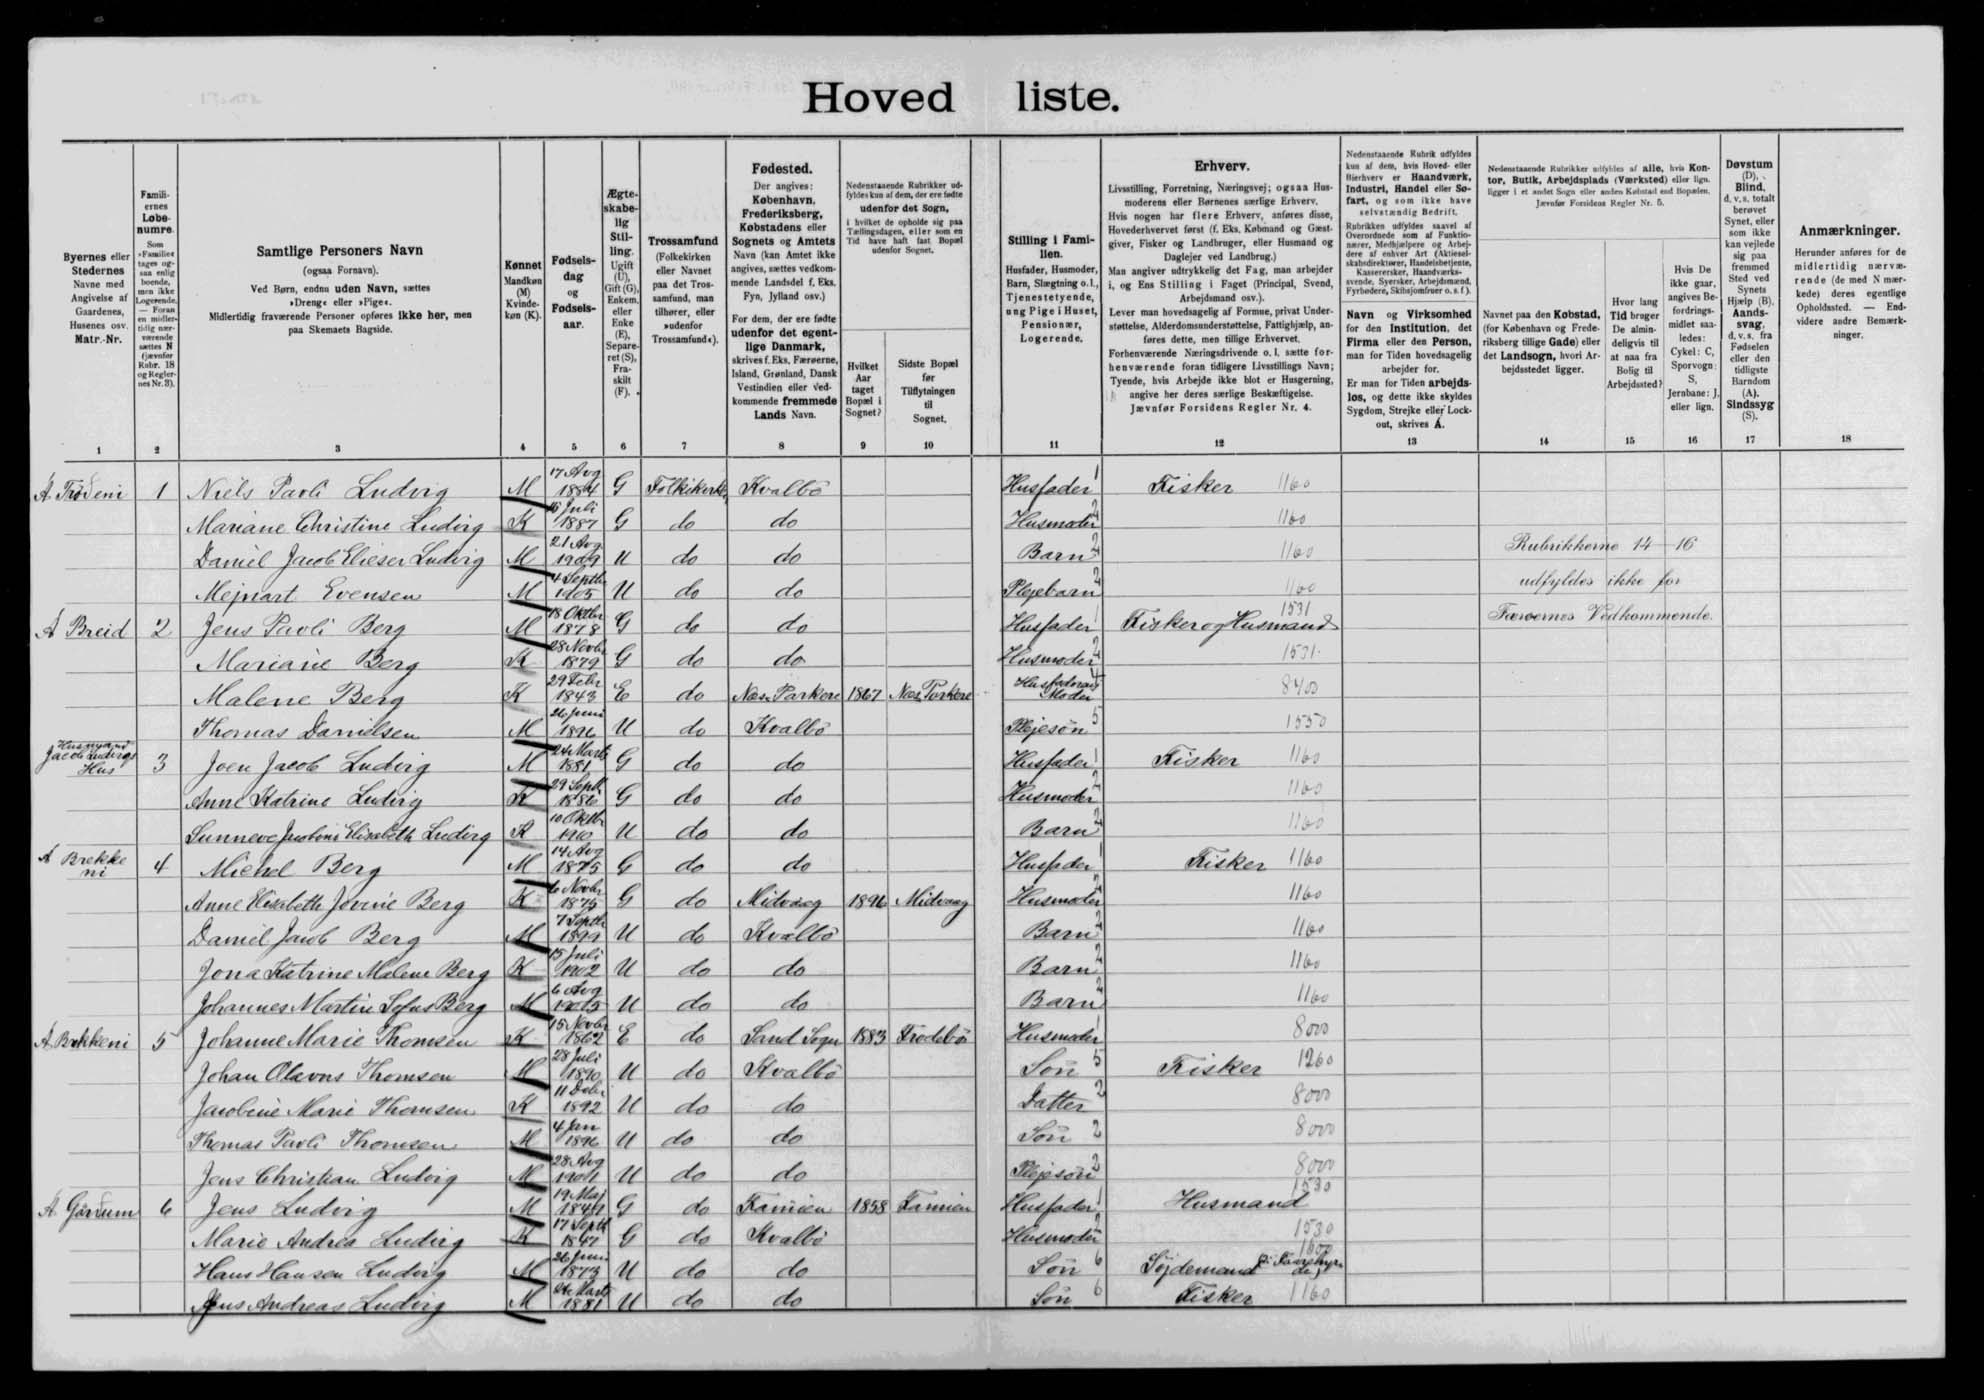 Hoved liste.
Byernes eller Stedernes Navne med Angivelse af Gaardenes, Husenes osv. Matr.-Nr.
Famili-ernes Løbe-numre.
Som »Familie« tages og-saa enlig boende, men ikke Logerende. — Foran en midler-tidig nær-værende sættes N (jævnfør Rubr. 18 og Regler-nes Nr. 3).
Samtlige Personers Navn
(ogsaa Fornavn).
Ved Børn, endnu uden Navn, sættes »Dreng« eller »Pige«.
Midlertidig fraværende Personer opføres ikke her, men paa Skemaets Bagside.
Kønnet
Mandkøn (M) Kvinde-køn (K).
Fødsels-dag og Fødsels-aar.
Ægte-skabe-lig Stil-ling.
Ugift (U), Gift (G), Enkem. eller Enke (E), Separe-ret (S), Fra-skilt (F).
Trossamfund
(Folkekirken eller Navnet paa det Tros-samfund, man tilhører, eller »udenfor Trossamfund«).
Fødested.
Der angives: København, Frederiksberg, Købstadens eller Sognets og Amtets Navn (kan Amtet ikke angives, sættes vedkom-mende Landsdel f. Eks. Fyn, Jylland osv.)
For dem, der ere fødte udenfor det egent-lige Danmark, skrives f. Eks. Færøerne, Island, Grønland, Dansk Vestindien eller ved-kommende fremmede Lands Navn.
Nedenstaaende Rubrikker ud-fyldes kun af dem, der ere fødte udenfor det Sogn, i hvilket de opholde sig paa Tællingsdagen, eller som en Tid have haft fast Bopæl udenfor Sognet.
Hvilket Aar taget Bopæl i Sognet?
Sidste Bopæl før Tilflytningen til Sognet.
Stilling i Fami-lien.
Husfader, Husmoder, Barn, Slægtning o. l., Tjenestetyende, ung Pige i Huset, Pensionær, Logerende.
Erhverv.
Livsstilling, Forretning, Næringsvej; ogsaa Hus-moderens eller Børnenes særlige Erhverv.
Hvis nogen har flere Erhverv, anføres disse, Hovederhvervet først (f. Eks. Købmand og Gæst-giver, Fisker og Landbruger, eller Husmand og Daglejer ved Landbrug.)
Man angiver udtrykkelig det Fag, man arbejder i, og Ens Stilling i Faget (Principal, Svend, Arbejdsmand osv.).
Lever man hovedsagelig af Formue, privat Under-støttelse, Alderdomsunderstøttelse, Fattighjælp, an-føres dette, men tillige Erhvervet.
Forhenværende Næringsdrivende o. l. sætte for-henværende foran tidligere Livsstillings Navn; Tyende, hvis Arbejde ikke blot er Husgerning, angive her deres særlige Beskæftigelse.
Jævnfør Forsidens Regler Nr. 4.
Nedenstaaende Rubrik udfyldes kun af dem, hvis Hoved- eller Bierhverv er Haandværk, Industri, Handel eller Sø-fart, og som ikke have selvstændig Bedrift.
Rubrikken udfyldes saavel af Overordnede som af Funktio-nærer, Medhjælpere og Arbej-dere af enhver Art (Aktiesel-skabsdirektører, Handelsbetjente, Kasserersker, Haandværks-svende, Syersker, Arbejdsmænd, Fyrbødere, Skibsjomfruer o. s. f.).
Navn og Virksomhed for den Institution, det Firma eller den Person, man for Tiden hovedsagelig arbejder for.
Er man for Tiden arbejds-løs, og dette ikke skyldes Sygdom, Strejke eller Lock-out, skrives Á.
Nedenstaaende Rubrikker udfyldes af alle, hvis Kon-tor, Butik, Arbejdsplads (Værksted) eller lign. ligger i et andet Sogn eller anden Købstad end Bopælen.
Jævnfør Forsidens Regler Nr. 5.
Navnet paa den Købstad, (for København og Frede-riksberg tillige Gade) eller det Landsogn, hvori Ar-bejdsstedet ligger.
Hvor lang Tid bruger De almin-deligvis til at naa fra Bolig til Arbejdssted?
Hvis De ikke gaar, angives Be-fordrings-midlet saa-ledes: Cykel: C, Sporvogn: S, Jernbane: J, eller lign.
Døvstum (D), Blind, d. v. s. totalt berøvet Synet, eller som ikke kan vejlede sig paa fremmed Sted ved Synets Hjælp (B), Aands-svag, d. v. s. fra Fødselen eller den tidligste Barndom (A). Sindssyg (S).
Anmærkninger.
Herunder anføres for de midlertidig nærvæ-rende (de med N mær-kede) deres egentlige Opholdssted. — End-videre andre Bemærk-ninger.
1 2 3 4 5 6 7 8 9 10 11 12 13 14 15 16 17 18
1 Niels Pavli Ludvig M 17 Aug 1884 G Folkekirke Kvalbö Husfader 1 Fisker 1160
Mariane Christine Ludvig K Juli 1887 G do do Husmoder 2 1160
Daniel Jacob Elieser Ludvig M 21 Aug 1909 U do do Barn 2 1160 Rubrikkerne 14-16
Mejnart Evensen M 4 Septbr 1905 U do do Plejebarn 2 1160 udfyldes ikke for
A Breid 2 Jens Pavli Berg M 18 Oktbr 1878 G do do Husfader 1 Fisker og Husmand 1531 Færøernes Vedkommende.
Mariane Berg K 28 Novbr 1879 G do do Husmoder 2 1531
Malene Berg K 29 Febr 1843 E do Næs Porkere 1867 Næs Porkere Husfaderens Moder 8400
Thomas Danielsen M 26 Juni 1896 U do Kvalbö Plejesön 5 1550
Husmand Jacob Ludvigs Hus 3 Joen Jacob Ludvig M 24 Marts 1881 G do do Husfader 1 Fisker 1160
Anne Katrine Ludvig K 29 Septbr 1886 G do do Husmoder 2 1160
Sunneve Jacobine Elisabeth Ludvig K 10 Oktbr 1910 U do do Barn 2 1160
A Brekkeni 4 Michel Berg M 14 Aug 1875 G do do Husfader 1 Fisker 1160
Anne Elisabeth Jovine Berg K 6 Novbr 1875 G do Midvaag 1896 Midvaag Husmoder 2 1160
Daniel Jacob Berg M 7 Septbr 1899 U do Kvalbö Barn 2 1160
Jona Katrine Malene Berg K 15 Juli 1902 U do do Barn 2 1160
Johannes Martin Sofus Berg M 6 Aug 1905 U do do Barn 2 1160
A Brekkeni 5 Johanne Marie Thomsen K 15 Novbr 1862 E do Sand Sogn 1883 Frodebö Husmoder 1 8000
Johan Olavus Thomsen M 28 Juli 1890 U do Kvalbö Sön 5 Fisker 1260
Jacobine Marie Thomsen K 11 Debr 1892 U do do Datter 2 8000
Thomas Pavli Thomsen M 4 Jan 1896 U do do Sön 2 8000
Jens Christian Ludvig M 28 Aug 1901 U do do Plejesön 2 8000
6 Jens Ludvig M 19 Maj 1841 G do Famien 1858 Famien Husfader 1 Husmand 1530
Marie Andrea Ludvig K 17 Septbr 1847 G do Kvalbö Husmoder 2 1530
Hans Hansen Ludvig M 26 Juni 1873 U do do Sön 6
Jens Andreas Ludvig M 24 Marts 1881 U do do Sön 6 Fisker 1160